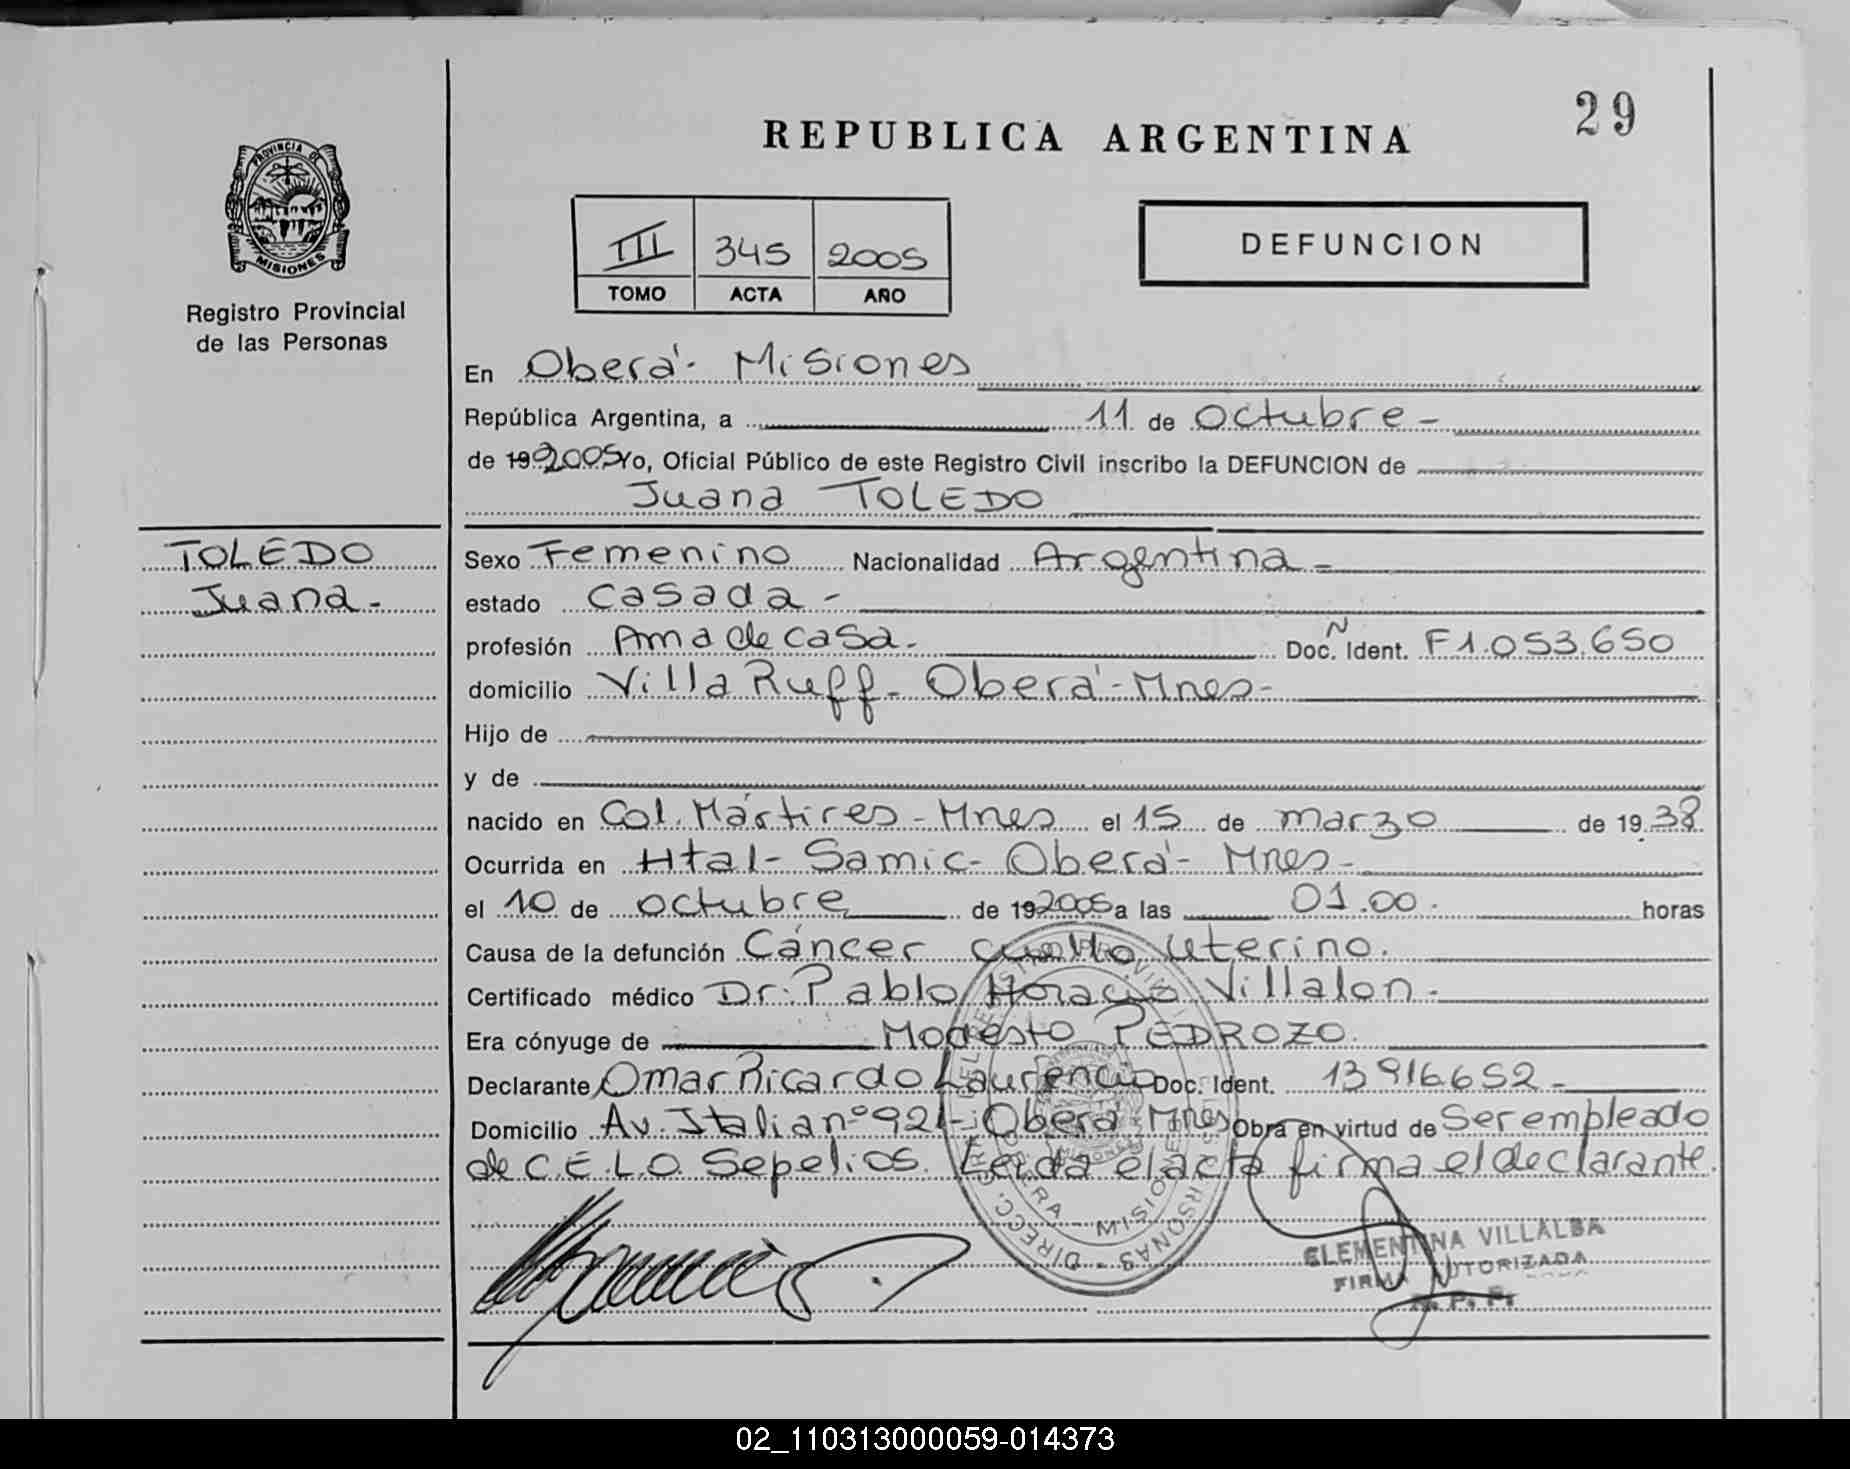 29
REPUBLICA ARGENTINA
PROVINCIA DE
MISIONES
III 345 2005
TOMO ACTA AÑO
DEFUNCION
Registro Provincial
de las Personas
En Oberá - Misiones
República Argentina, a 11 de octubre -
de 19 2005 Yo, Oficial Público de este Registro Civil inscribo la DEFUNCION de
Juana TOLEDO
TOLEDO
Juana -
Sexo Femenino Nacionalidad Argentina -
estado casada -
profesión Ama de casa. Doc. Ñ Ident. F1.053.650
domicilio Villa Ruff - Oberá - Mnes -
Hijo de
y de
nacido en Col. Mártires - Mnes el 15 de marzo de 19 38
Ocurrida en Htal - Samic - Oberá - Mnes -
el 10 de octubre de 19 2005 a las 01.00. horas
Causa de la defunción Cáncer cuello uterino.
Certificado médico Dr. Pablo Horacio Villalon -
Era cónyuge de Modesto PEDROZO.
Declarante Omar Ricardo Laurencio Doc. Ident. 13916652 -
Domicilio Av. Italia nº 921 - Oberá Mnes Obra en virtud de Ser empleado
de C.E.L.O. Sepelios. Leida el acta firma el declarante.
CLEMENTINA VILLALBA
FIRMA AUTORIZADA
R. P. P.
02_110313000059-014373